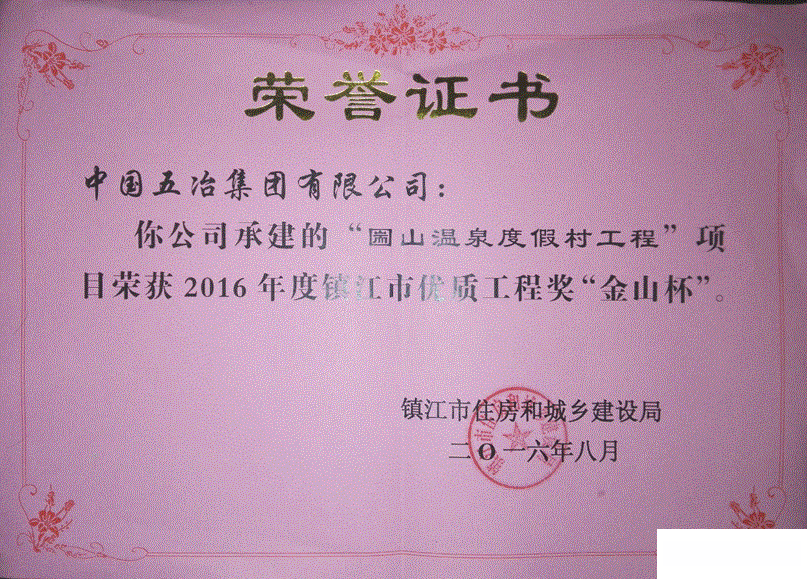 荣誉证书
中国五冶集团有限公司：
你公司承建的“圌山温泉度假村工程”项
目荣获 2016 年度镇江市优质工程奖“金山杯”。
镇江市住房和城乡建设局
二〇一六年八月